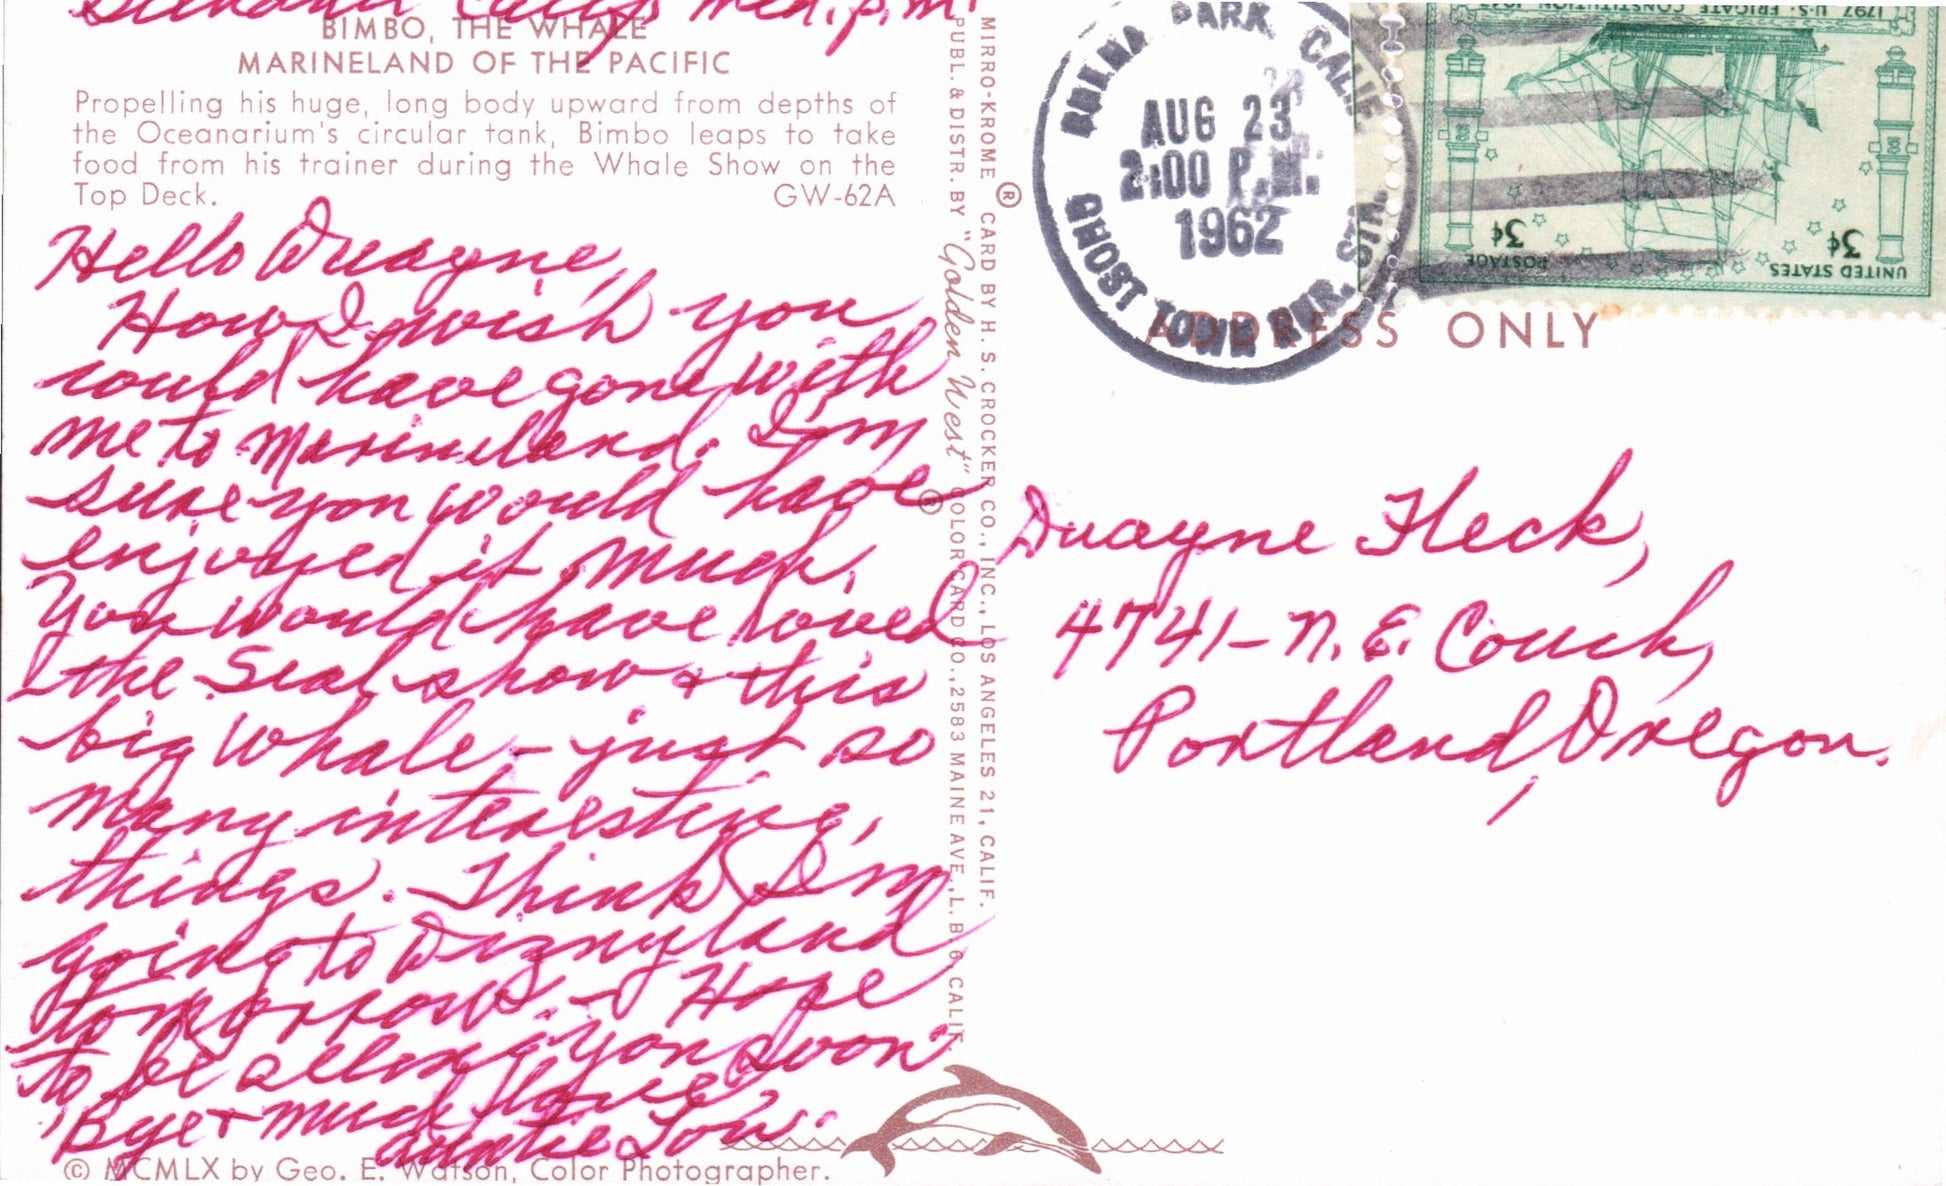 Calif. Wed. p.m.
BIMBO, THE WHALE
MARINELAND OF THE PACIFIC
Propelling his huge, long body upward from depths of
the Oceanarium's circular tank, Bimbo leaps to take
food from his trainer during the Whale Show on the
Top Deck. GW-62A
Hello Duayne,
How I wish you
could have gone with
me to Marineland. I'm
sure you would have
enjoyed it much.
You would have loved
the Seal show & this
big whale - just so
many interesting,
things. - Think I'm
going to Diznyland
tomorrow. - Hope
to be seeing you soon
Bye & much love
auntie Lou.
© MCMLX by Geo. E. Watson, Color Photographer.
MIRRO-KROME ® CARD BY H. S. CROCKER CO., INC., LOS ANGELES 21, CALIF.
PUBL. & DISTR. BY "Golden West" ® COLOR CARD CO., 2583 MAINE AVE., L.B. 6, CALIF.
BUENA PARK, CALIF.
AUG 23
2:00 P.M.
1962
GHOST TOWN RUR. STA.
1797 U.S. FRIGATE CONSTITUTION 1947
3¢ 3¢
UNITED STATES POSTAGE
ADDRESS ONLY
Duayne Fleck,
4741 - N. E. Couch,
Portland, Oregon.